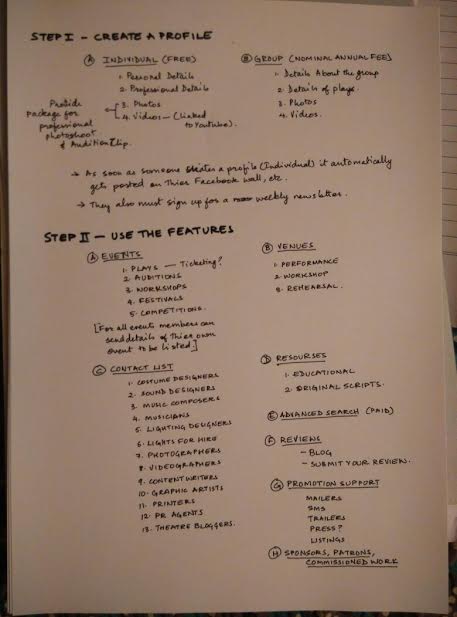 STEP I - CREATE A PROFILE
(A) INDIVIDUAL (FREE)
1. Personal Details
2. Professional Details
3. Photos
4. Videos - (linked to Youtube).
Provide package for professional photoshoot & Audition Clip.
(B) GROUP (NOMINAL ANNUAL FEE)
1. Details About the group
2. Details of plays.
3. Photos
4. Videos.
→ As soon as someone creates a profile (Individual) it automatically
gets posted on Thier Facebook wall, etc.
→ They also must sign up for a weekly newsletter.
STEP II - USE THE FEATURES
(A) EVENTS
1. PLAYS - Ticketing?
2. AUDITIONS
3. WORKSHOPS
4. FESTIVALS
5. COMPETITIONS.
[For all events members can
send details of Thier own
event to be listed.]
(B) VENUES
1. PERFORMANCE
2. WORKSHOP
3. REHEARSAL.
(C) CONTACT LIST
1. COSTUME DESIGNERS
2. SOUND DESIGNERS
3. MUSIC COMPOSERS
4. MUSICIANS
5. LIGHTING DESIGNERS
6. LIGHTS FOR HIRE
7. PHOTOGRAPHERS
8. VIDEOGRAPHERS
9. CONTENT WRITERS
10. GRAPHIC ARTISTS
11. PRINTERS
12. PR AGENTS
13. THEATRE BLOGGERS.
(D) RESOURSES
1. EDUCATIONAL
2. ORIGINAL SCRIPTS.
(E) ADVANCED SEARCH (PAID)
(F) REVIEWS
- BLOG
- SUBMIT YOUR REVIEW.
(G) PROMOTION SUPPORT
MAILERS
SMS
TRAILERS
PRESS?
LISTINGS
(H) SPONSORS, PATRONS,
COMMISSIONED WORK